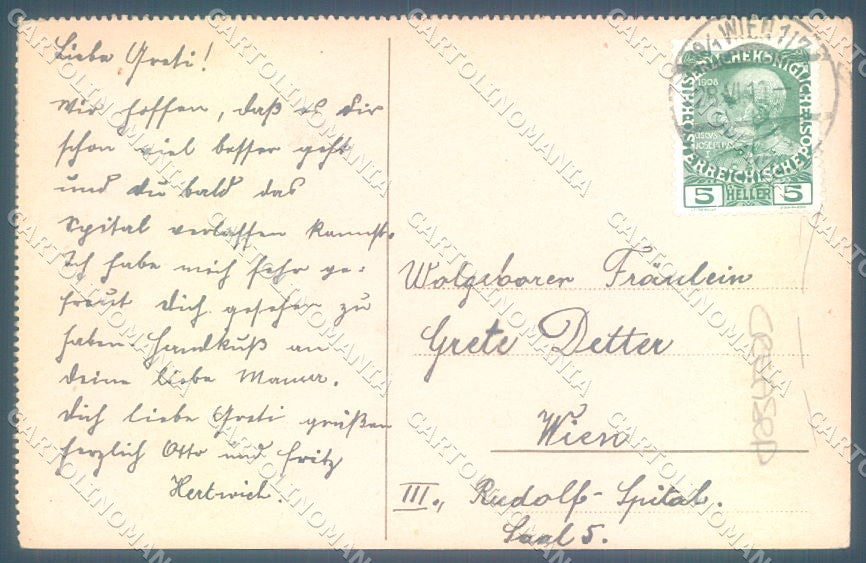 Liebe Greti!
Wir hoffen, daß es dir
schon viel besser geht
und du bald das
Spital verlassen kannst.
Ich habe mich sehr ge-
freut dich gesehen zu
haben. Handkuß an
deine liebe Mama.
Dich liebe Greti grüßen
herzlich Otto und Fritz
Hertwich.
WIEN
1908
5 HELLER 5
Wolgeborer Fräulein
Grete Detter
Wien
III., Rudolf-Spital.
Saal 5.
CARTOLINOMANIA